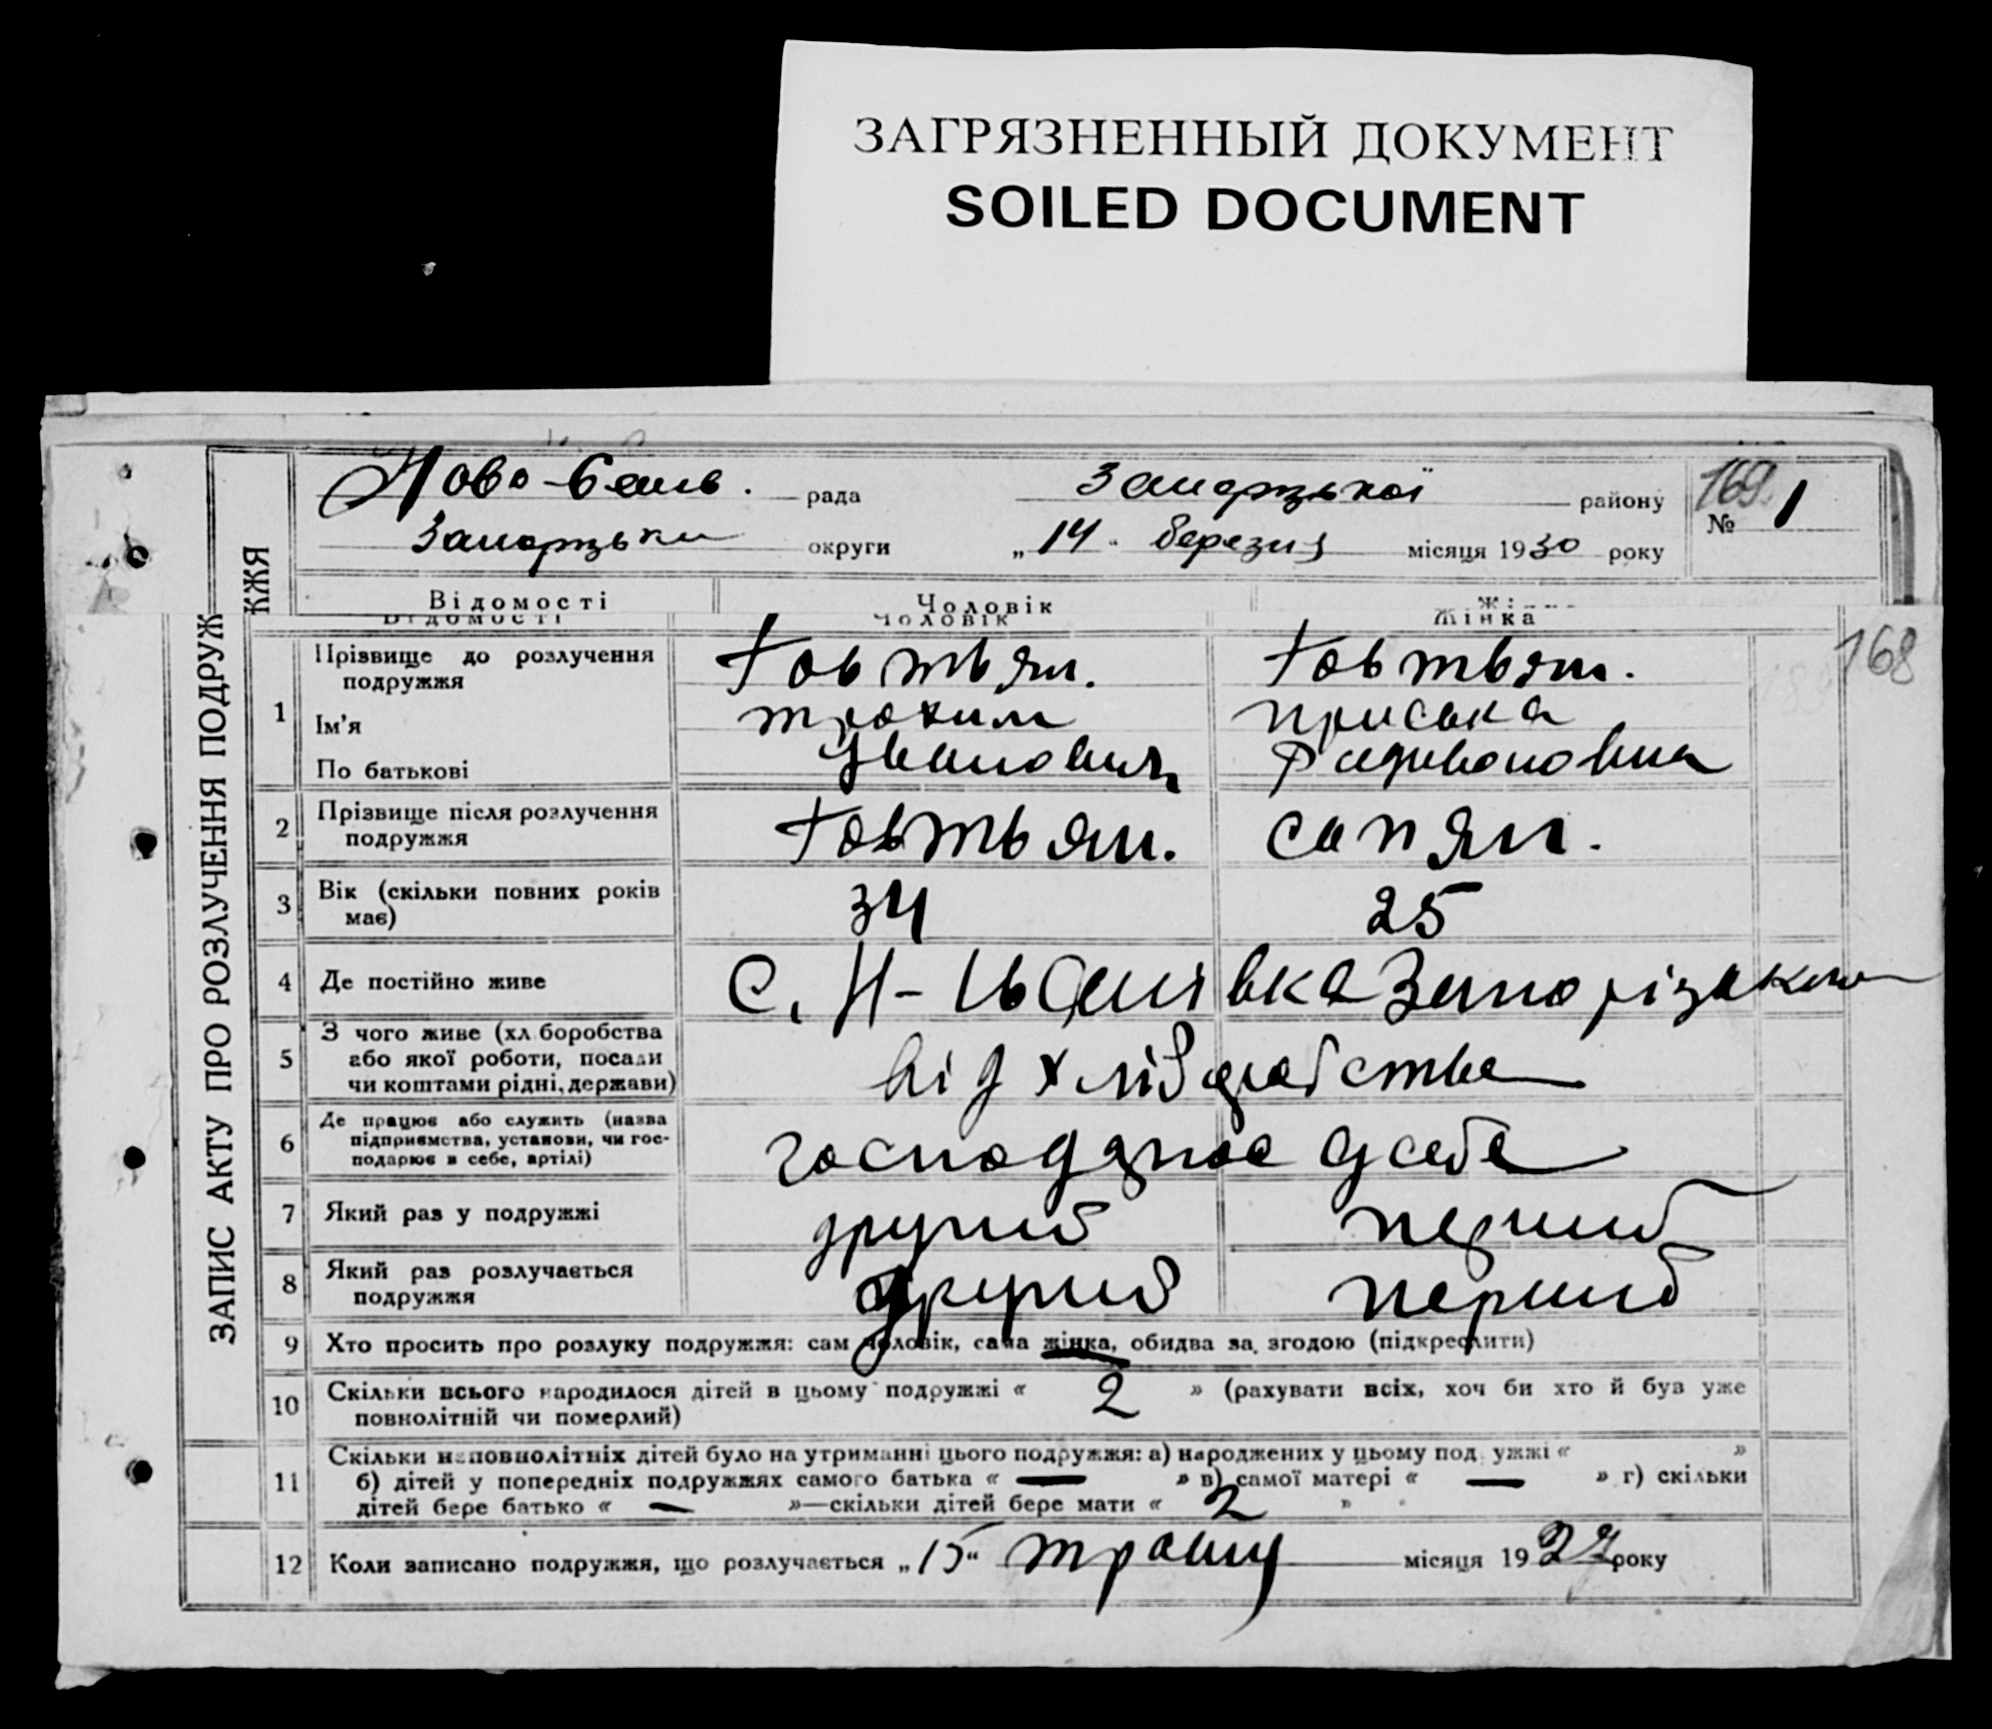 ЗАГРЯЗНЕННЫЙ ДОКУМЕНТ
SOILED DOCUMENT
рада району
169.
№ 1
округи „14“ березня місяця 1930 року
ЖЖЯ
Відомості Чоловік
Відомості Чоловік Жінка
168
ЗАПИС АКТУ ПРО РОЗЛУЧЕННЯ ПОДРУЖ
1 Прізвище до розлучення
подружжя Товтьян. Товтьян.
Ім'я трохим приська
По батькові Иванович
2 Прізвище після розлучення
подружжя Товтьян. сапян.
3 Вік (скільки повних років
має) 34 25
4 Де постійно живе с. Н-
5 З чого живе (хл боробства
або якої роботи, посади
чи коштами рідні, держави) від хліборобства
6 Де працює або служить (назва
підприємства, установи, чи гос-
подарює в себе, артілі) у себе
7 Який раз у подружжі другий перший
8 Який раз розлучається
подружжя другий перший
9 Хто просить про розлуку подружжя: сам чоловік, сама жінка, обидва за згодою (підкреслити)
10 Скільки всього народилося дітей в цьому подружжі « 2 » (рахувати всіх, хоч би хто й був уже
повнолітній чи померлий)
11 Скільки неповнолітніх дітей було на утриманні цього подружжя: а) народжених у цьому под ужжі « »
б) дітей у попередніх подружжях самого батька « — » в) самої матері « — » г) скільки
дітей бере батько « — »—скільки дітей бере мати « 2 »
12 Коли записано подружжя, що розлучається „15“ місяця 1927 року